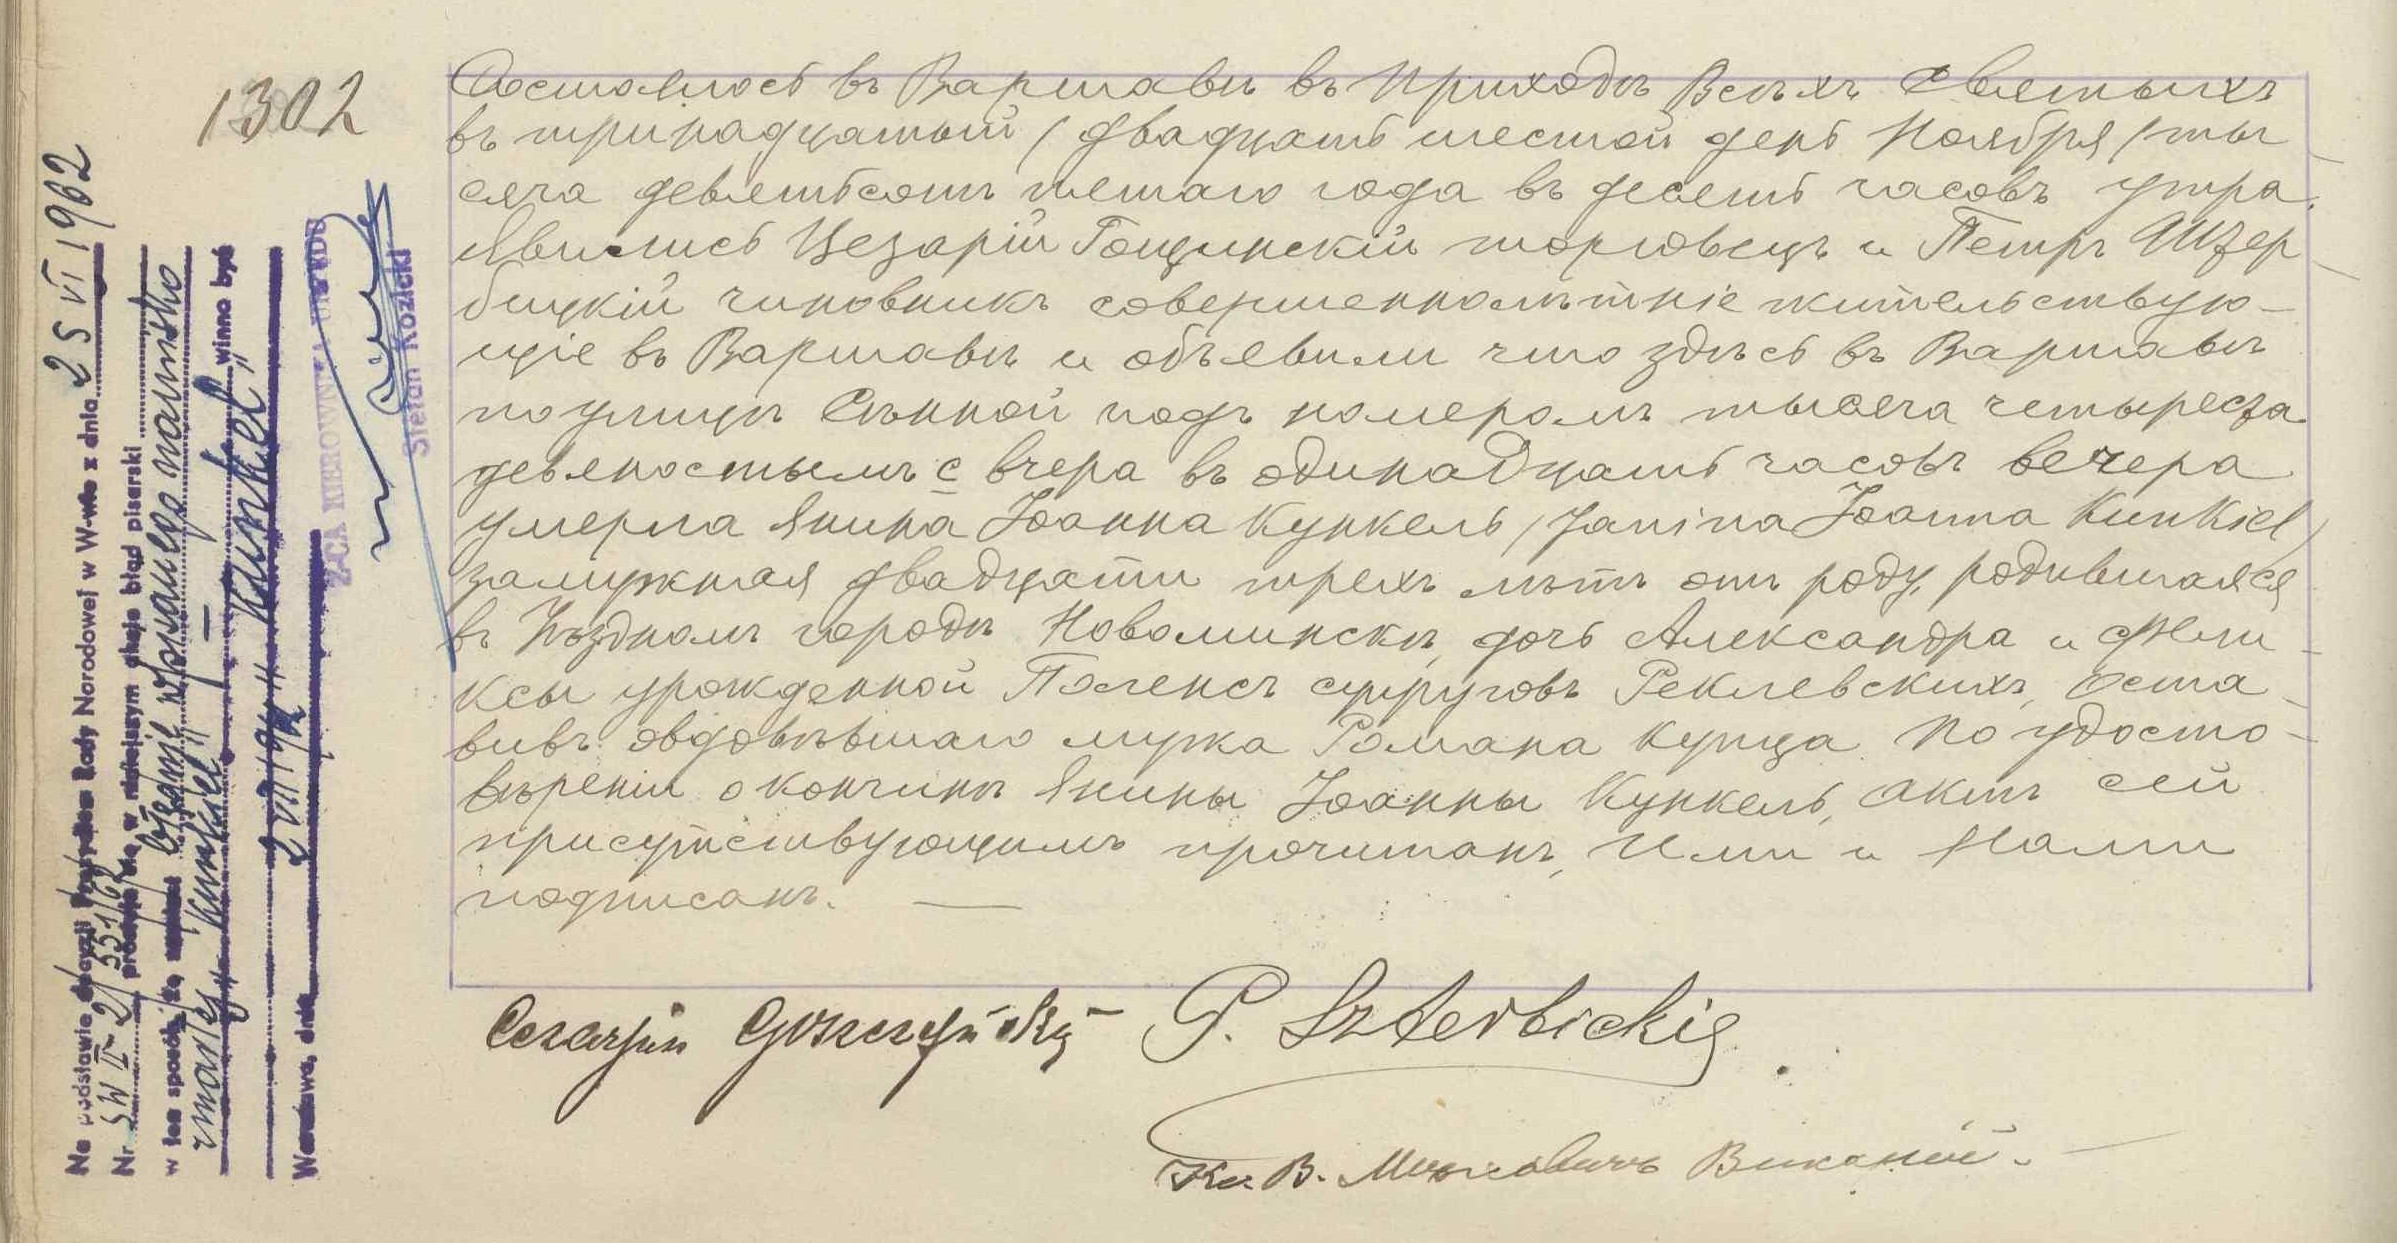 1302
Состоялось въ Варшавѣ въ Приходѣ Всѣхъ Святыхъ
въ тринадцатый / двадцать шестой день Ноября / ты-
сяча девятьсотъ шестаго года въ десять часовъ утра.
Явились Цезарій Гощинскій торговецъ и Петръ Штер-
бицкій чиновникъ совершеннолѣтніе жительствую-
щіе въ Варшавѣ и объявили что здѣсь въ Варшавѣ
по улицѣ Сѣнной подъ номеромъ тысяча четыреста
девяностымъ с вчера въ одинадцать часовъ вечера
умерла Янина Іоанна Кункель /Janina Joanna Kunkiel/
замужная двадцати трехъ лѣтъ отъ роду, родившаяся
въ Уѣздномъ городѣ Новоминскѣ, дочь Александра и Фели-
ксы урожденной Поленсъ супруговъ Реклевскихъ, Оста-
вивъ овдовѣвшаго мужа Романа купца. По удосто-
вѣреніи о кончинѣ Янины Іоанны Кункель, актъ сей
присутствующимъ прочитанъ, Ими и Нами
подписанъ. —
Cezaryusz Goszczyński P. Szterbicki
Кс. В. Викарій.
Na podstawie decyzji Prezydium Rady Narodowej w W-wie z dnia 25 VI 1962
Nr SW II-2/331/62 prostuje się w niniejszym akcie błąd pisarski
w ten sposób, że, zamiast błędnie wpisanego nazwiska
zmarłej „Kunkiel" — winno być
„Kunkel"
Warszawa, dnia 2 VII 1962
Z-CA KIEROWNIKA URZĘDU
Stefan Kozicki